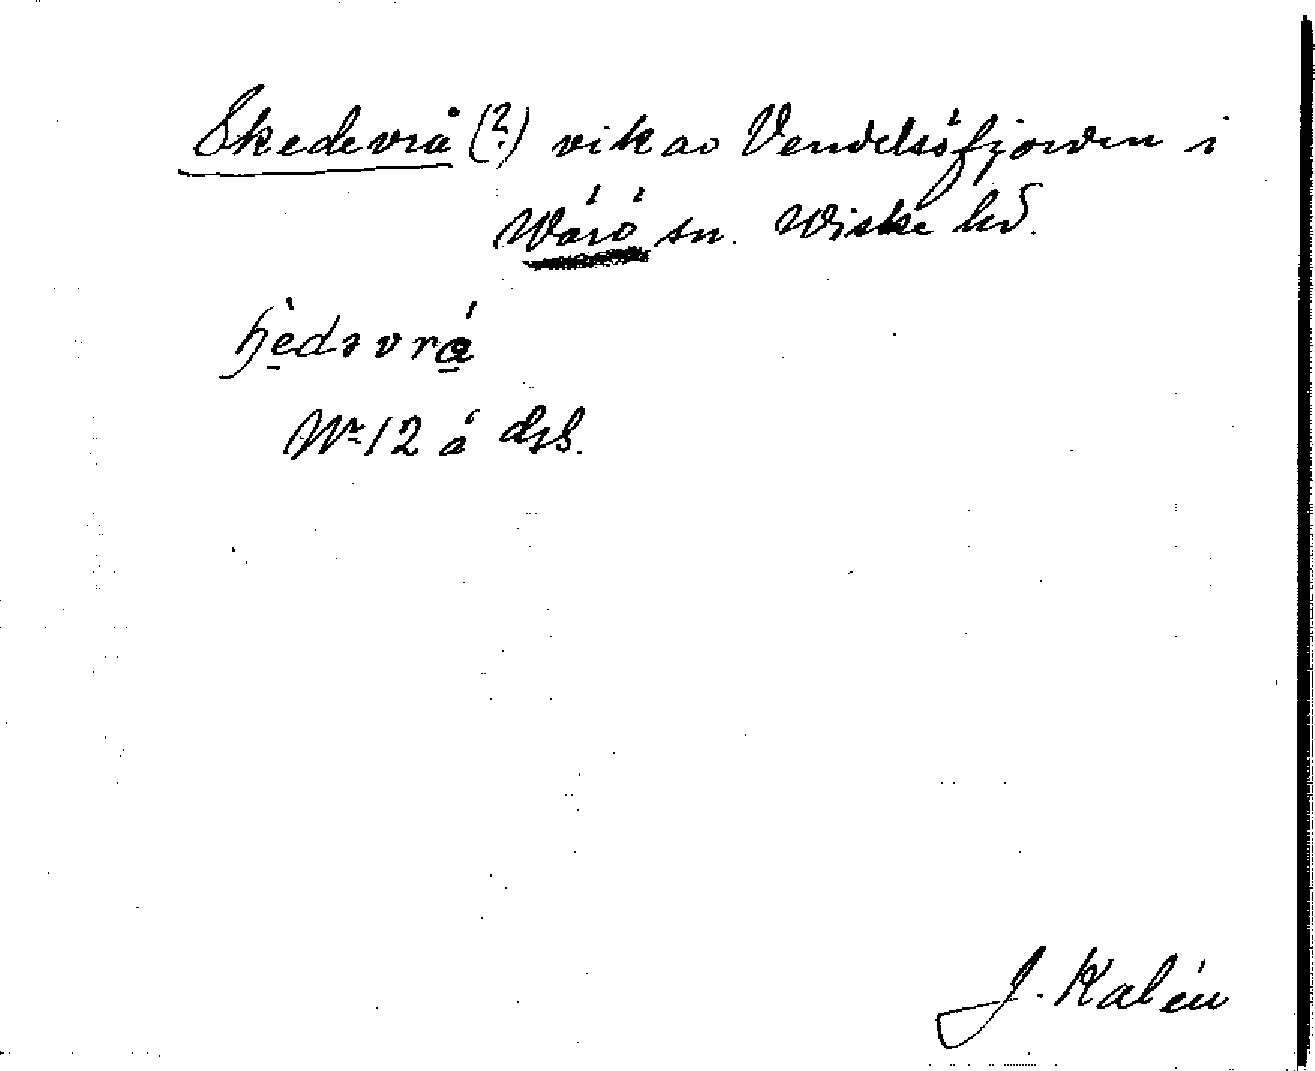 Skedevrå (?) vik av Vendelsöfjorden i
Wärö sn. Wiske hd.
Nr 12 å dsb.
J. Kalén